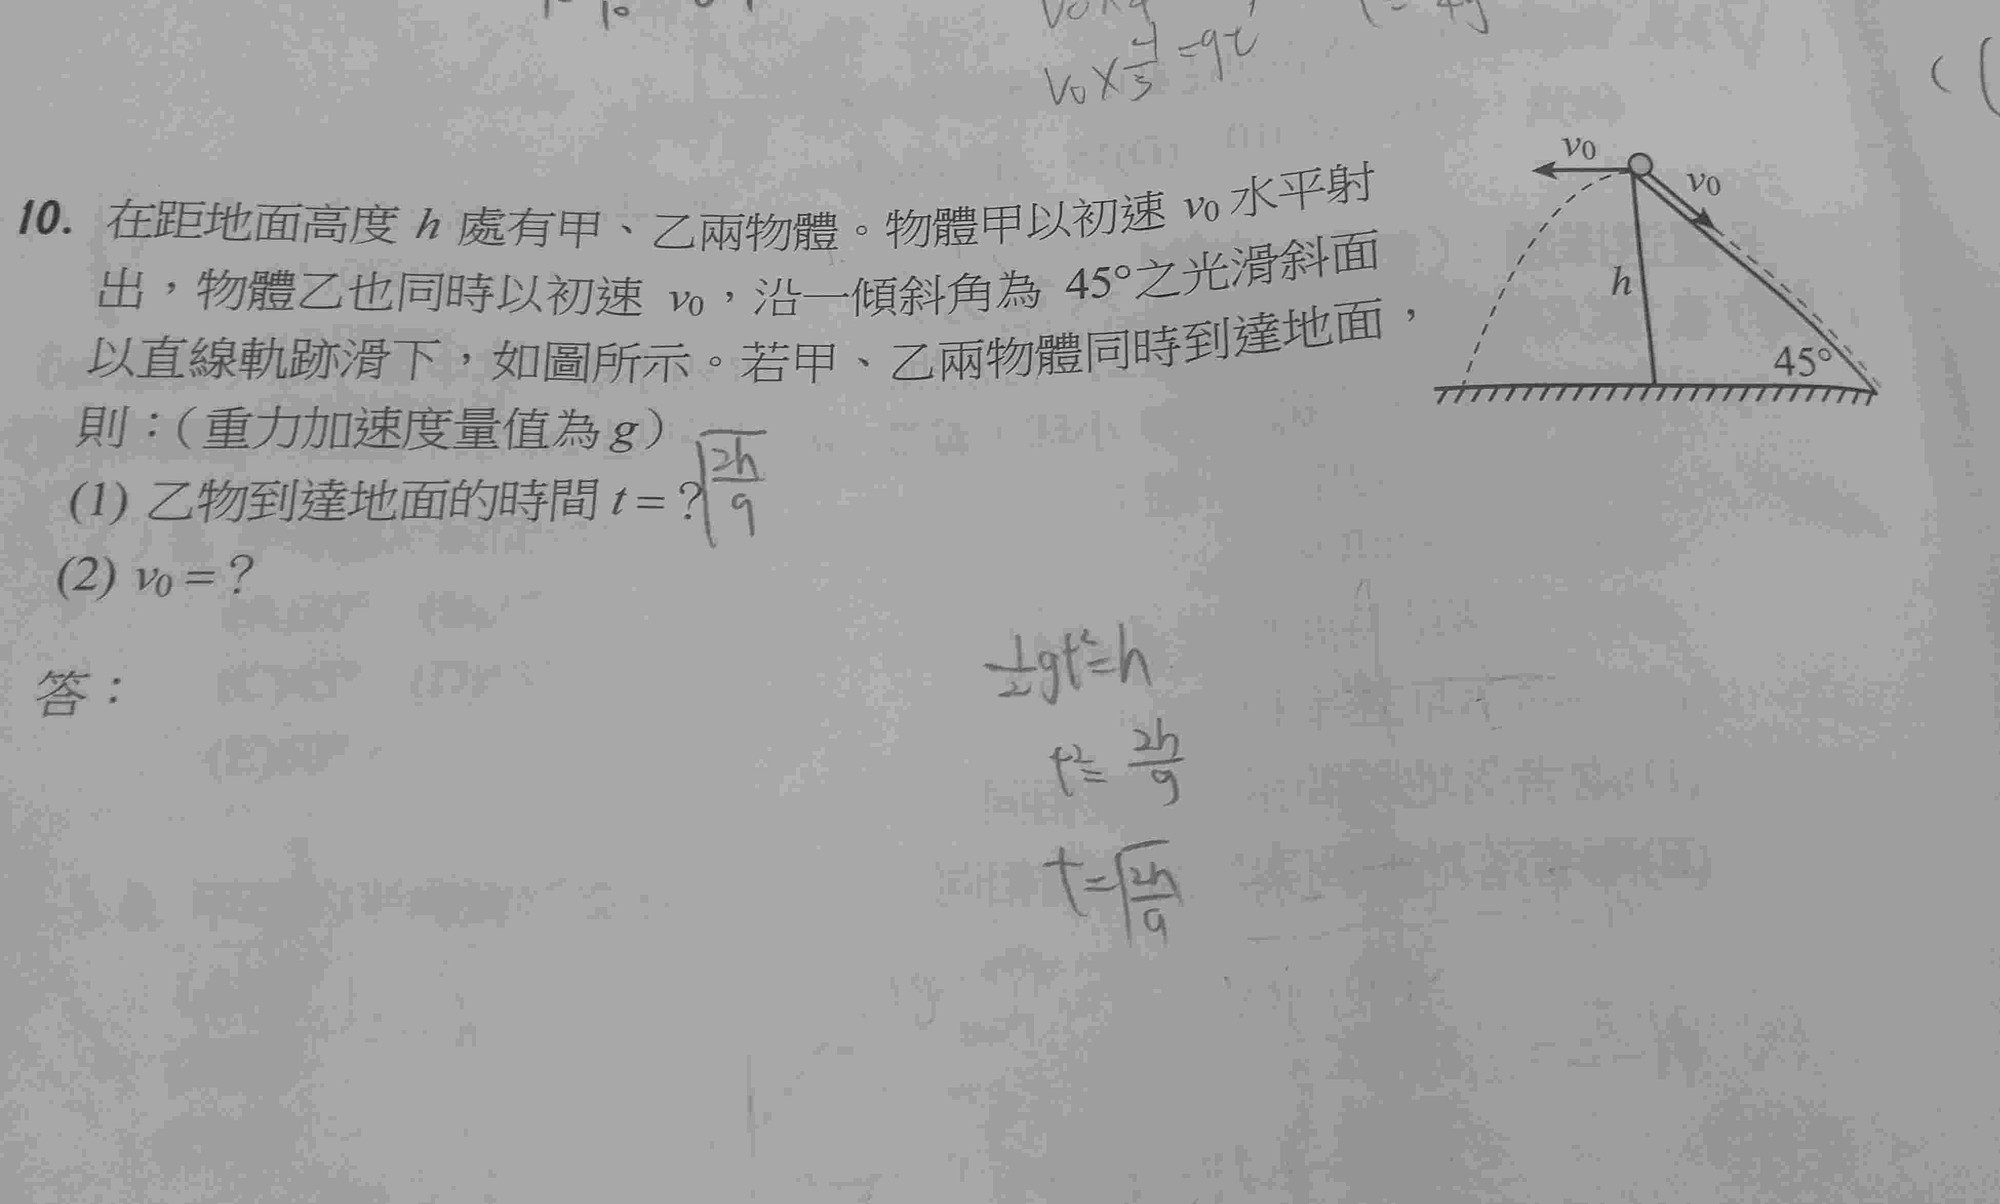 V₀×4/3=gt
10. 在距地面高度 h 處有甲、乙兩物體。物體甲以初速 v₀ 水平射
出，物體乙也同時以初速 v₀，沿一傾斜角為 45°之光滑斜面
以直線軌跡滑下，如圖所示。若甲、乙兩物體同時到達地面，
則：(重力加速度量值為 g)
(1) 乙物到達地面的時間 t = ? √(2h/g)
(2) v₀ = ?
答：
v₀
v₀
h
45°
½gt²=h
t²=2h/g
t=√(2h/g)